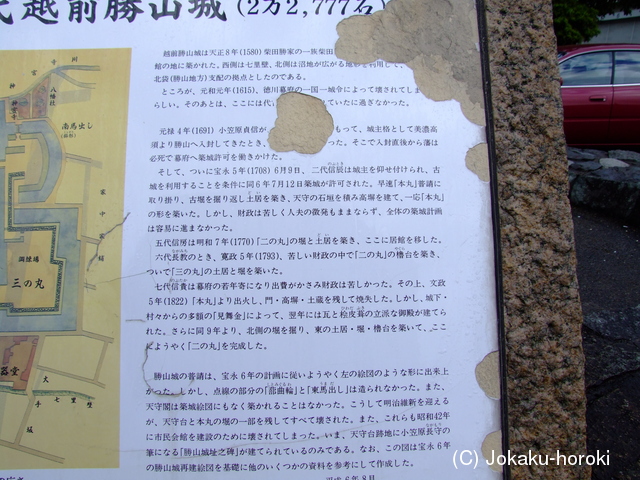 代越前勝山城(2万2,777石)
越前勝山城は天正8年(1580)柴田勝家の一族柴田
館の地に築かれた。西側は七里壁、北側は沼地が広がる地形を利用して、
北袋(勝山地方)支配の拠点としたのである。
ところが、元和元年(1615)、徳川幕府の一国一城令によって壊されてしま
らしい。そのあとは、ここには代 ていたに過ぎなかった。
元禄4年(1691)小笠原貞信が もって、城主格として美濃高
須より勝山へ入封してきたとき、 った。そこで入封直後から藩は
必死で幕府へ築城許可を働きかけた。
そして、ついに宝永5年(1708)6月9日、二代信辰は城主を仰せ付けられ、古
城を利用することを条件に同6年7月12日築城が許可された。早速「本丸」普請に
取り掛り、古堀を掘り返し土居を築き、天守の石垣を積み高塀を建て、一応「本丸」
の形を築いた。しかし、財政は苦しく人夫の徴発もままならず、全体の築城計画
は容易に進まなかった。
五代信房は明和7年(1770)「二の丸」の堀と土居を築き、ここに居館を移した。
六代長教のとき、寛政5年(1793)、苦しい財政の中で「二の丸」の櫓台を築き、
ついで「三の丸」の土居と堀を築いた。
七代信貴は幕府の若年寄になり出費がかさみ財政は苦しかった。その上、文政
5年(1822)「本丸」より出火し、門・高塀・土蔵を残して焼失した。しかし、城下・
村々からの多額の「見舞金」によって、翌年には瓦と桧皮葺の立派な御殿が建てら
れた。さらに同9年より、北側の堀を掘り、東の土居・堀・櫓台を築いて、ここ
にようやく「二の丸」を完成した。
勝山城の普請は、宝永6年の計画に従いようやく左の絵図のような形に出来上
がった。しかし、点線の部分の「蔀曲輪」と「東馬出し」は造られなかった。また、
天守閣は築城絵図にもなく築かれることはなかった。こうして明治維新を迎える
が、天守台と本丸の堀の一部を残してすべて壊された。また、これらも昭和42年
に市民会館を建設のために壊されてしまった。いま、天守台跡地に小笠原長守の
筆になる「勝山城址之碑」が建てられているのみである。なお、この図は宝永6年
の勝山城再建絵図を基礎に他のいくつかの資料を参考にして作成した。
平成6年8月
神宮寺
八幡社
南馬出し
家中家屋
調練場
三の丸
器堂
大手七里壁坂
(C) Jokaku-horoki